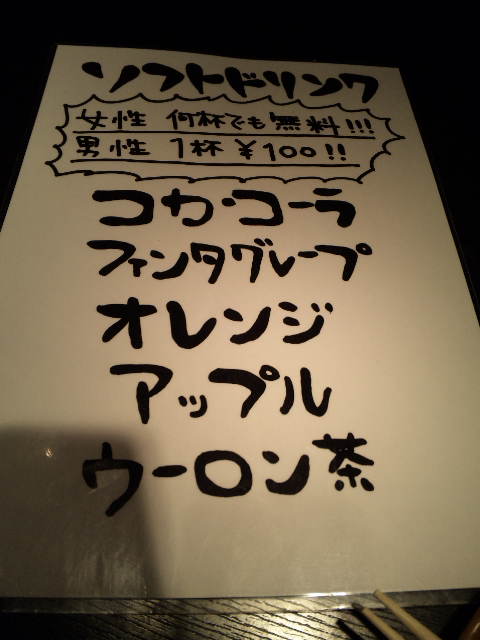 ソフトドリンク
女性 何杯でも無料!!!
男性 1杯 ¥100!!
コカ・コーラ
ファンタグレープ
オレンジ
アップル
ウーロン茶